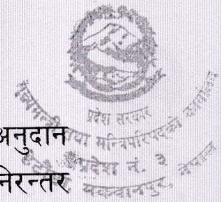 प्रदेश सरकार
मुख्यमन्त्री तथा मन्त्रिपरिषदको कार्यालय
प्रदेश नं. ३
मकवानपुर, नेपाल
अनुदान
निरन्तर